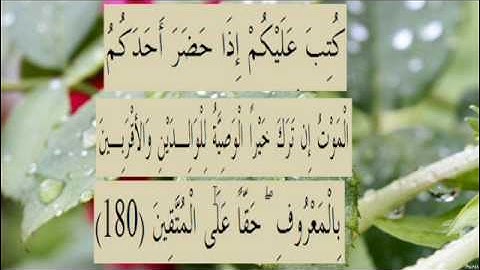 كُتِبَ عَلَيْكُمْ إِذَا حَضَرَ أَحَدَكُمُ
الْمَوْتُ إِن تَرَكَ خَيْراً الْوَصِيَّةُ لِلْوَالِدَيْنِ وَالأقْرَبِينَ
بِالْمَعْرُوفِ ۖ حَقّاً عَلَى الْمُتَّقِينَ (180)